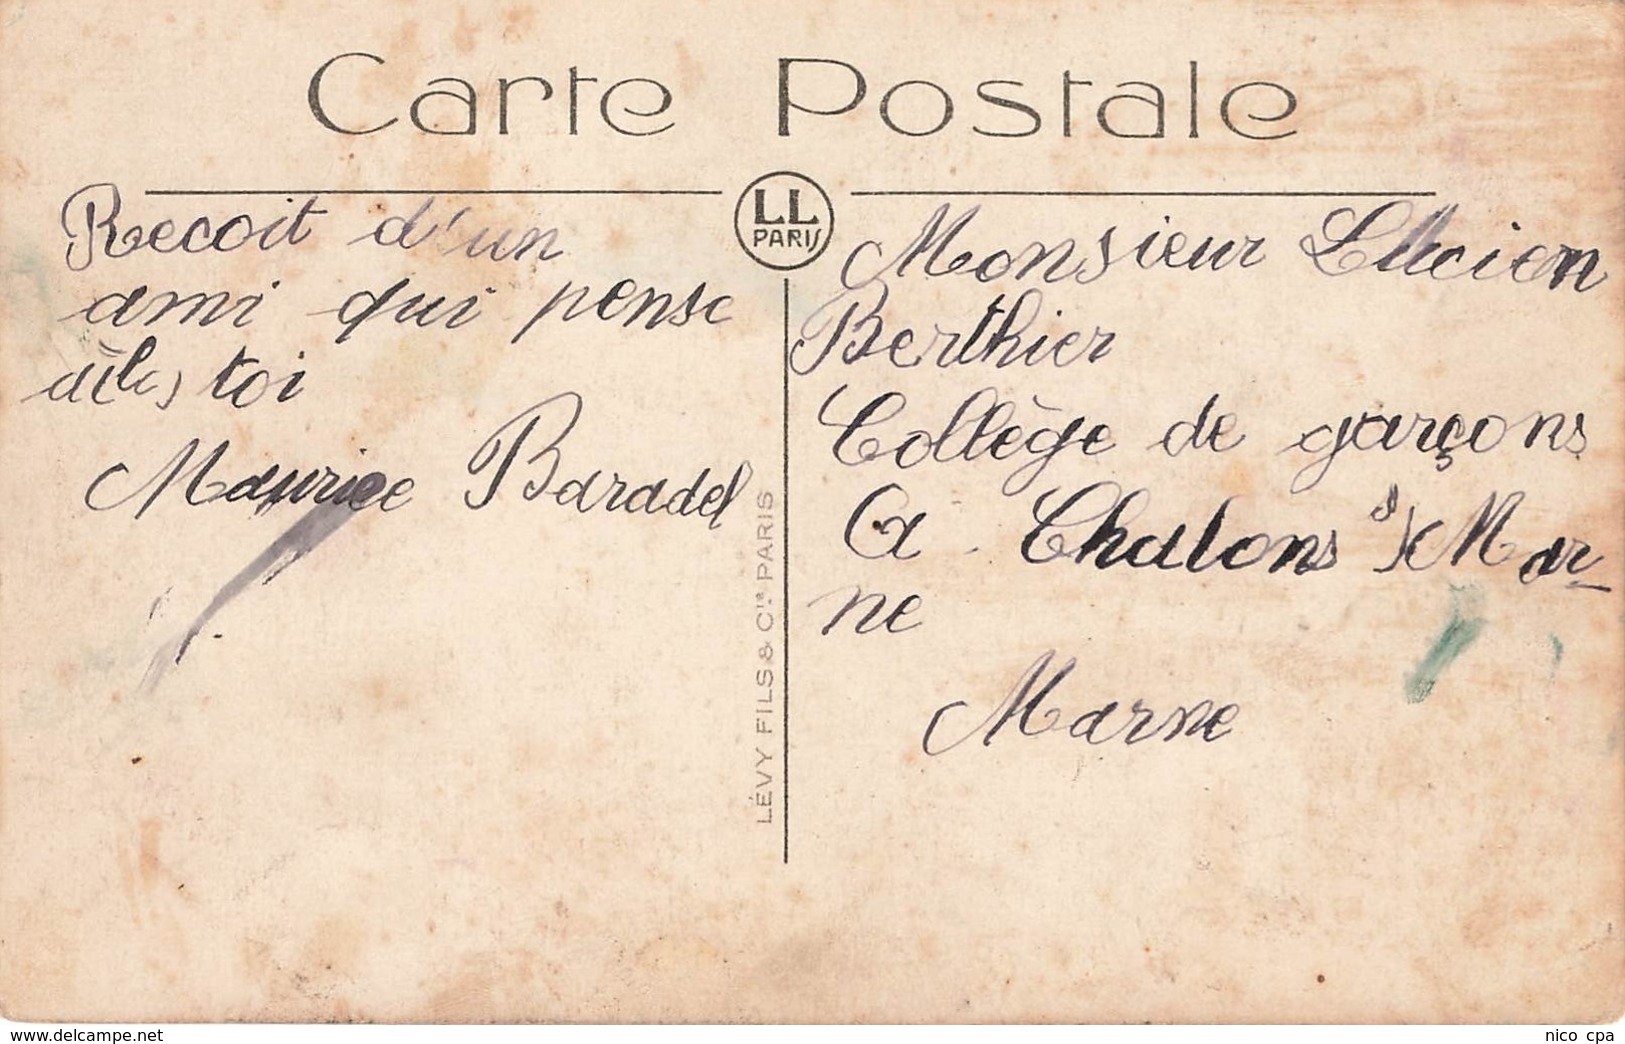 Carte Postale
LL
PARIS
Recoit d'un
ami qui pense
à toi
Maurice Baradel
LÉVY FILS & Cie PARIS
Monsieur Lucien
Berthier
Collège de garçons
A Chalons s/ Mar-
ne
Marne
www.delcampe.net
nico_cpa